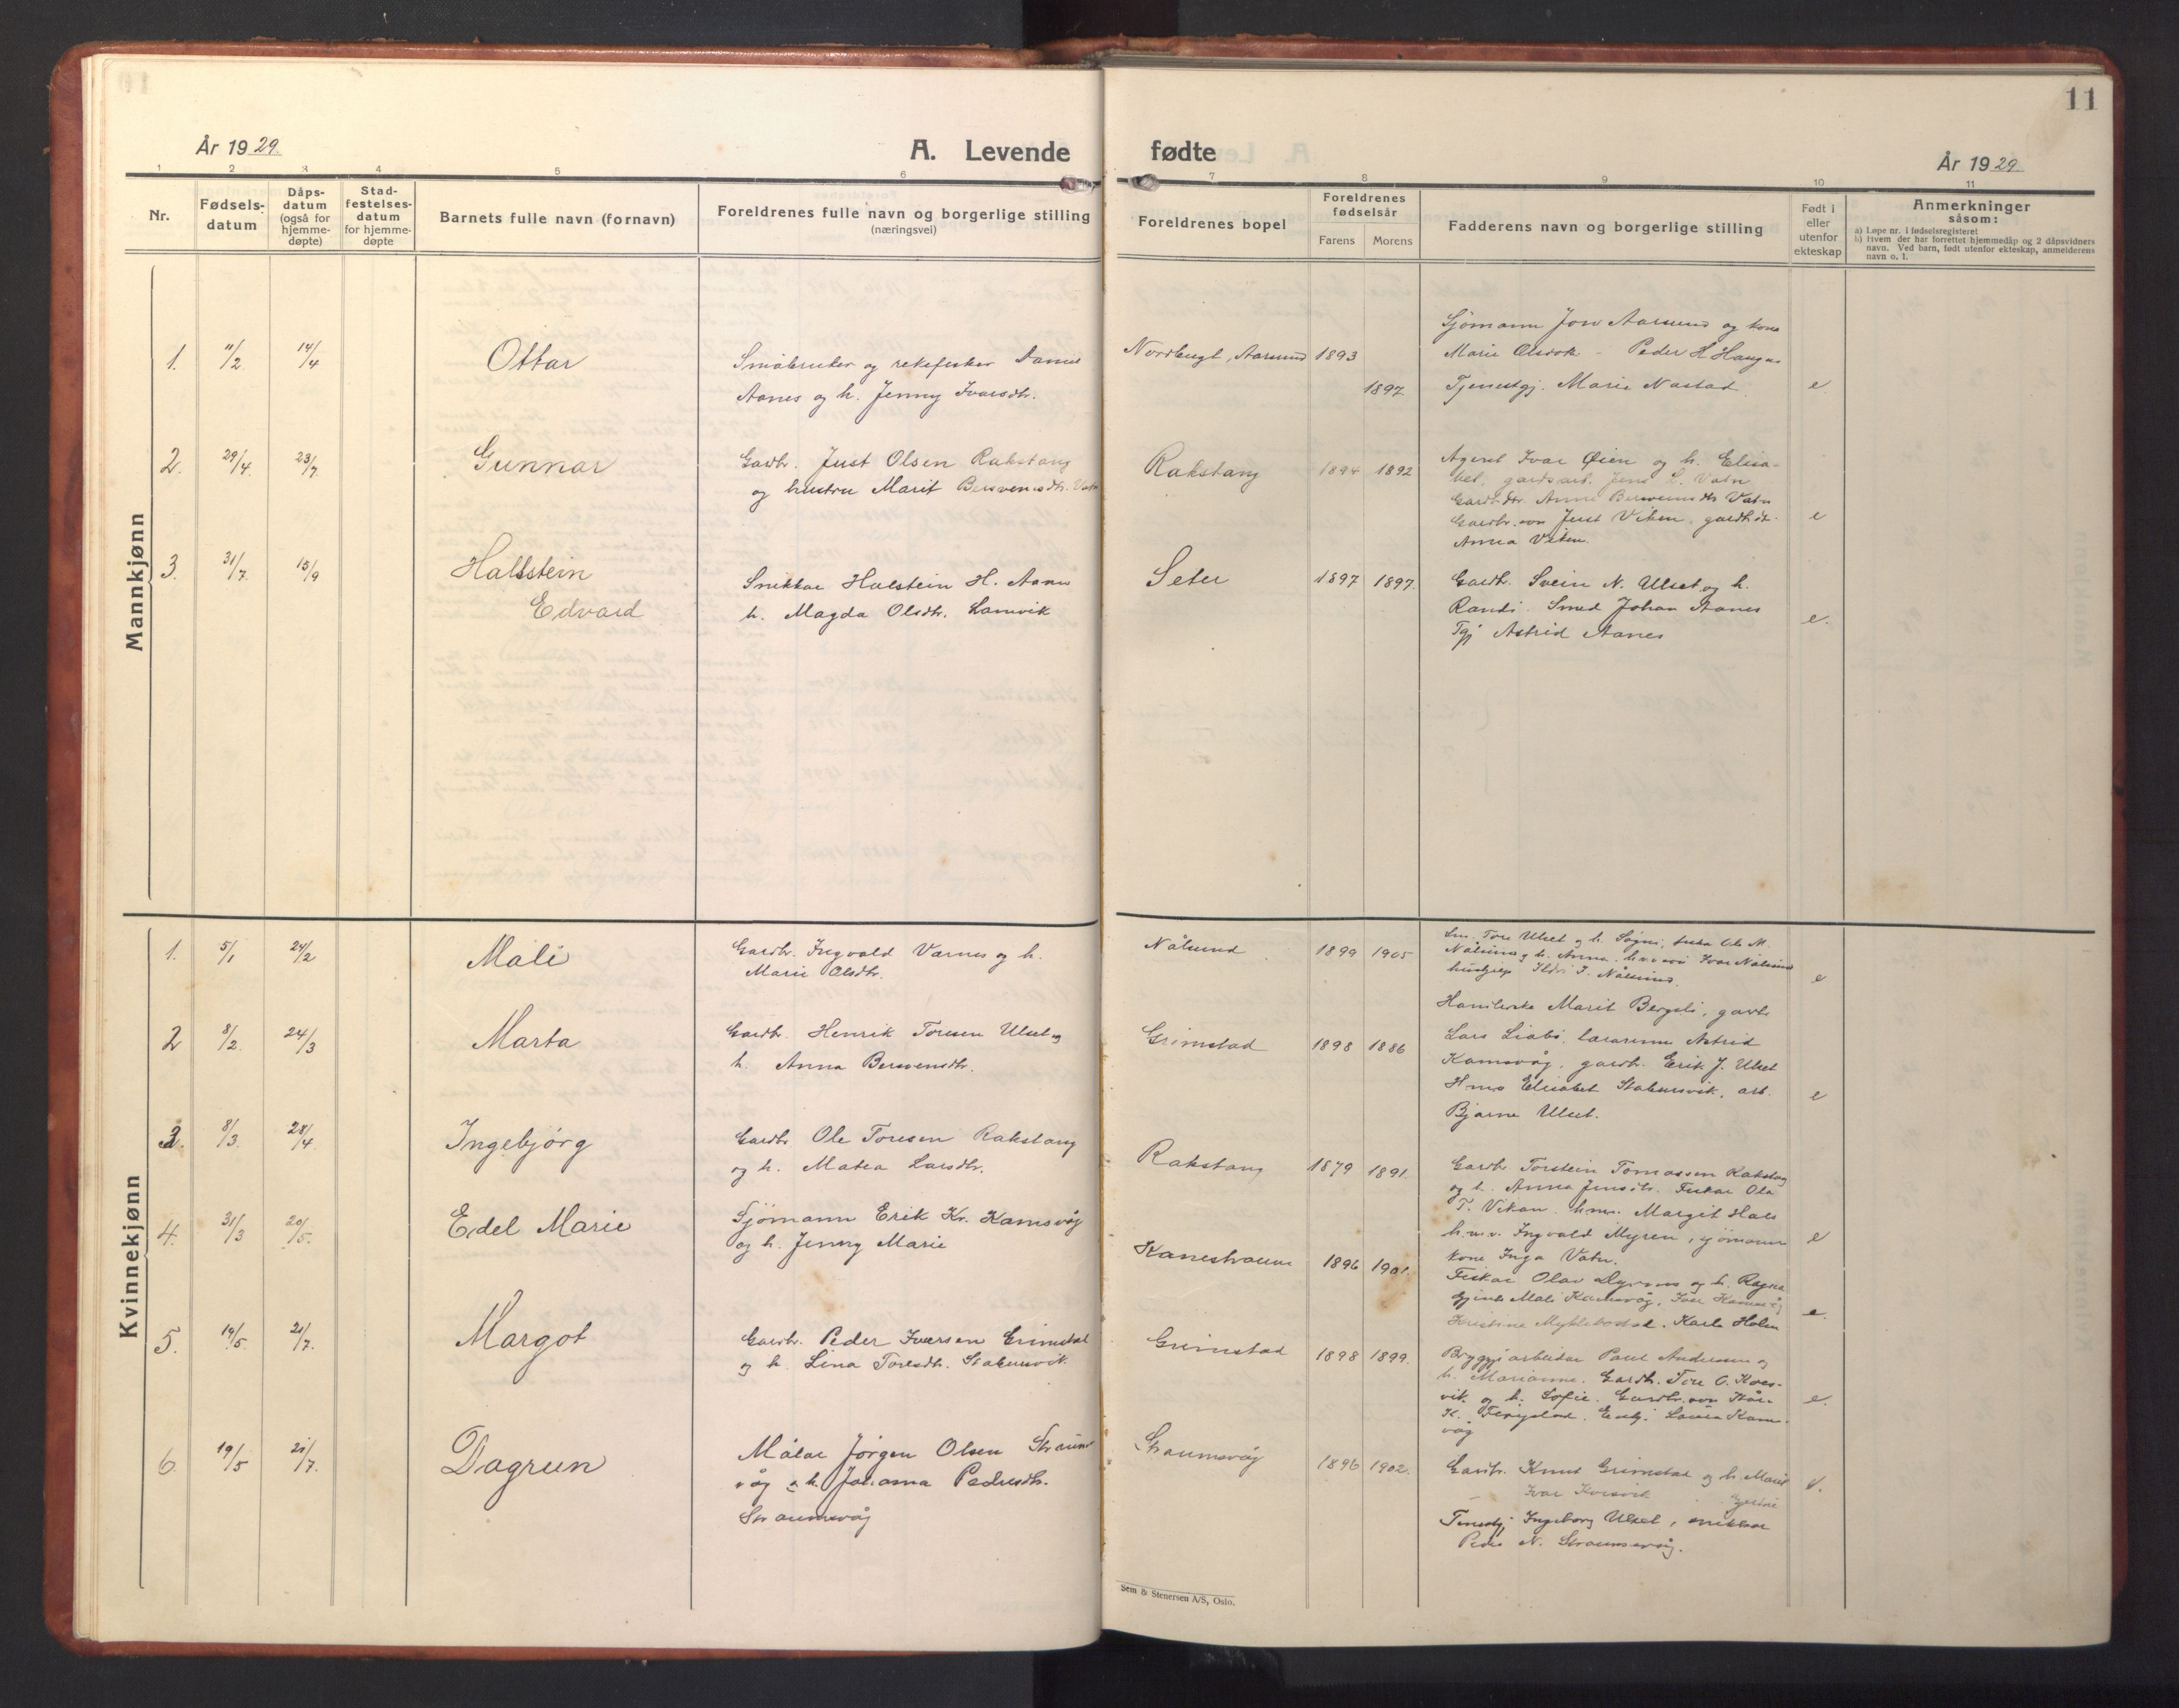 11
År 1929.
A. Levende fødte
År 1929.
1 2 3 4 5 6 7 8 9 10 11
Nr.
Fødsels-
datum
Dåps-
datum
(også for
hjemme-
døpte)
Stad-
festelses-
datum
for hjemme-
døpte
Barnets fulle navn (fornavn)
Foreldrenes fulle navn og borgerlige stilling
(næringsvei)
Foreldrenes bopel
Foreldrenes
fødselsår
Farens Morens
Fadderens navn og borgerlige stilling
Født i
eller
utenfor
ekteskap
Anmerkninger
såsom:
a) Løpe nr. i fødselsregisteret
b) Hvem der har forrettet hjemmedåp og 2 dåpsvidners
navn. Ved barn, født utenfor ekteskap, anmelderens
navn o. l.
Mannkjønn
1. 11/2 14/4 Ottar
Småbruker og rekefisker
Aanes og h. Jenny Ivarsdtr.
Nordbugt, Aarsund 1893
1897
Sjömann Jon Aarsund og kone
Marie Olsvik - Peder H Haugen
Tjenestgj. Marie Nastad e
2. 29/4. 23/7. Gunnar
Gardbr. Just Olsen Rakstang
og hustru Marit Bersvensdtr. Vatn
Rakstang 1894 1892
Agent Ivar Øien og h. Elisa-
bet, gardsarb. Jens L. Vatn
Gardbr.dtr. Anne Bersvensdtr Vatn
Gardbr. søn Just Viken, gardb.dtr.
Anna Viken. e
3. 31/7. 15/9 Hallstein
Edvard
Snikkar Halstein H. Aanes
h. Magda Olsdtr. Lamvik
Seter 1897 1897.
Gardbr. Svein N. Ulset og h.
Randi. Smed Johan Aanes
Tgj Astrid Aanes e.
Kvinnekjønn
1. 5/1 24/2 Mali
Gardbr. Ingvald Varnes og h.
Marie Olsdtr.
Nålsund 1899 1905
Sm. Tore Ulset og h. Signe, fiskar Ole M.
Nålsund og h. Anna. Ivar Nålsund
Ildri I. Nålsund. e
2 8/2. 24/3 Marta
Gardbr. Henrik Toresen Ulset og
h. Anna Bersvensdtr.
Grimstad 1898 1886
Marit Bergeli, gardbr
Lars Liabø, lærarinne Astrid
Kamsvåg, gardbr. Erik J. Ulset
Elisabet Stabursvik, arb.
Bjarne Ulset. e
3. 8/3. 28/4 Ingebjörg
Gardbr Ole Toresen Rakstang
og h. Matea Larsdtr.
Rakstang 1879 1891.
Gardbr Torstein Tomassen Rakstang
og h. Anna Jensdtr. Fiskar Ola
T. Vikan. Margit Hals
Ingvald Myren, sjömann e
kone Inga Vatn.
4. 31/3 20/5. Edel Marie
Sjömann Erik Kr. Kamsvåg
og h. Jenny Marie
Kanestraum 1896 1901.
Fiskar Olav og h. Ragna
Mali Kamsvåg, Kamsvåg
Kristine Myklebostad. Karls Holen e.
5. 19/5. 21/7. Margot
Gardbr. Peder Iversen Grimstad
og h. Lina Toresdtr. Stabursvik
Grimstad 1898 1899.
Bryggjiarbeidar Paul Andersen og
h. Marianne. Gardbr. Tore O. Kors-
vik og h. Sofie. Gardbr. søn e.
K. Lovisa Kams-
våg
6. 19/5 21/7. Dagrun
Målar Jörgen Olsen Straums-
våg og h. Johanna Pedersdtr.
Straumsvåg
Straumsvåg 1896 1902.
Gardbr. Knut Grimstad og h. Marit e.
Ivar Korsvik Gjertine
Tenestgj. Ingeborg Ulset, snikkar
Peder N. Straumsvåg.
Sem & Stenersen A/S, Oslo.